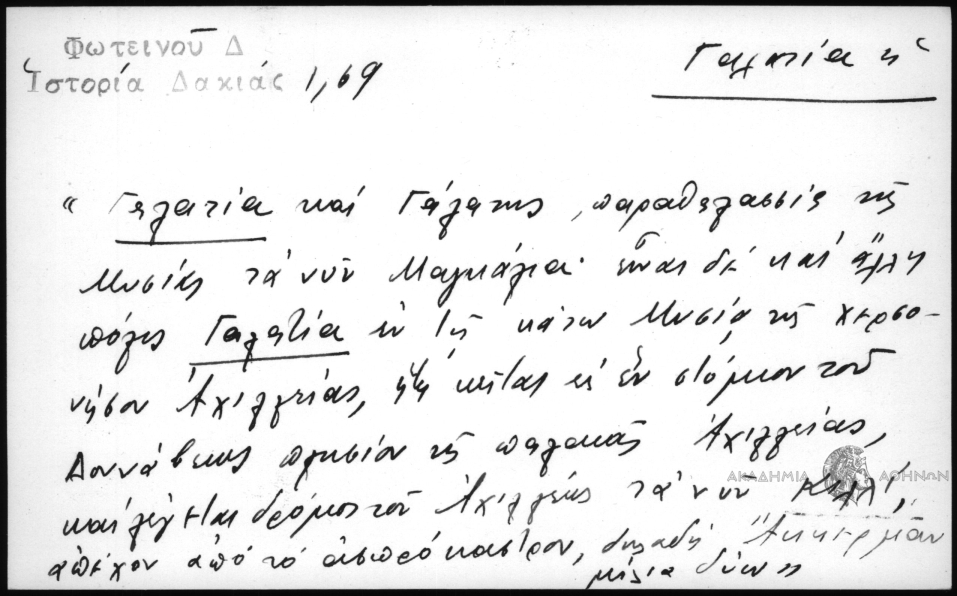 Φωτεινοῦ Δ
Ἱστορία Δακιάς 1,69
Γαλατία ἡ
“ Γαλατία καί Γάλατης, παραθαλασσία τῆς
Μυσίας τά νῦν Μαγκάλια· εἶναι δέ καί ἄλλη
πόλις Γαλατία ἐν τῇ κάτω Μυσίᾳ τῆς χερσο-
νήσου Ἀχιλλείας, κεῖται εἰς ἕν στόμιον τοῦ
Δουνάβεως πλησίον τῆς παλαιᾶς Ἀχιλλείας,
καί λέγεται δρόμος τοῦ Ἀχιλλέως τά νῦν
ἀπέχον ἀπό τό ἀσπρόκαστρον, δηλαδή Ἀκκερμάν
μίλια
ΑΚΑΔΗΜΙΑ ΑΘΗΝΩΝ